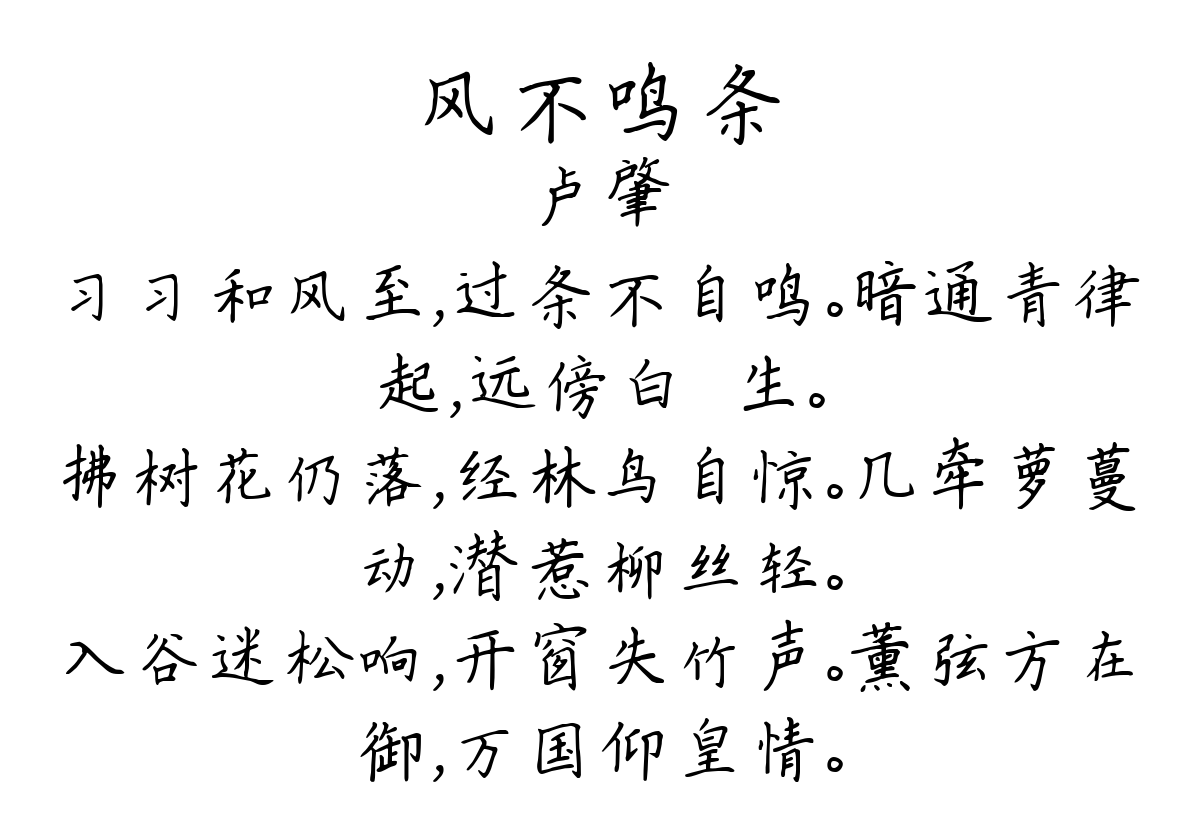 风不鸣条
卢肇
习习和风至,过条不自鸣。暗通青律
起,远傍白 生。
拂树花仍落,经林鸟自惊。几牵萝蔓
动,潜惹柳丝轻。
入谷迷松响,开窗失竹声。薰弦方在
御,万国仰皇情。